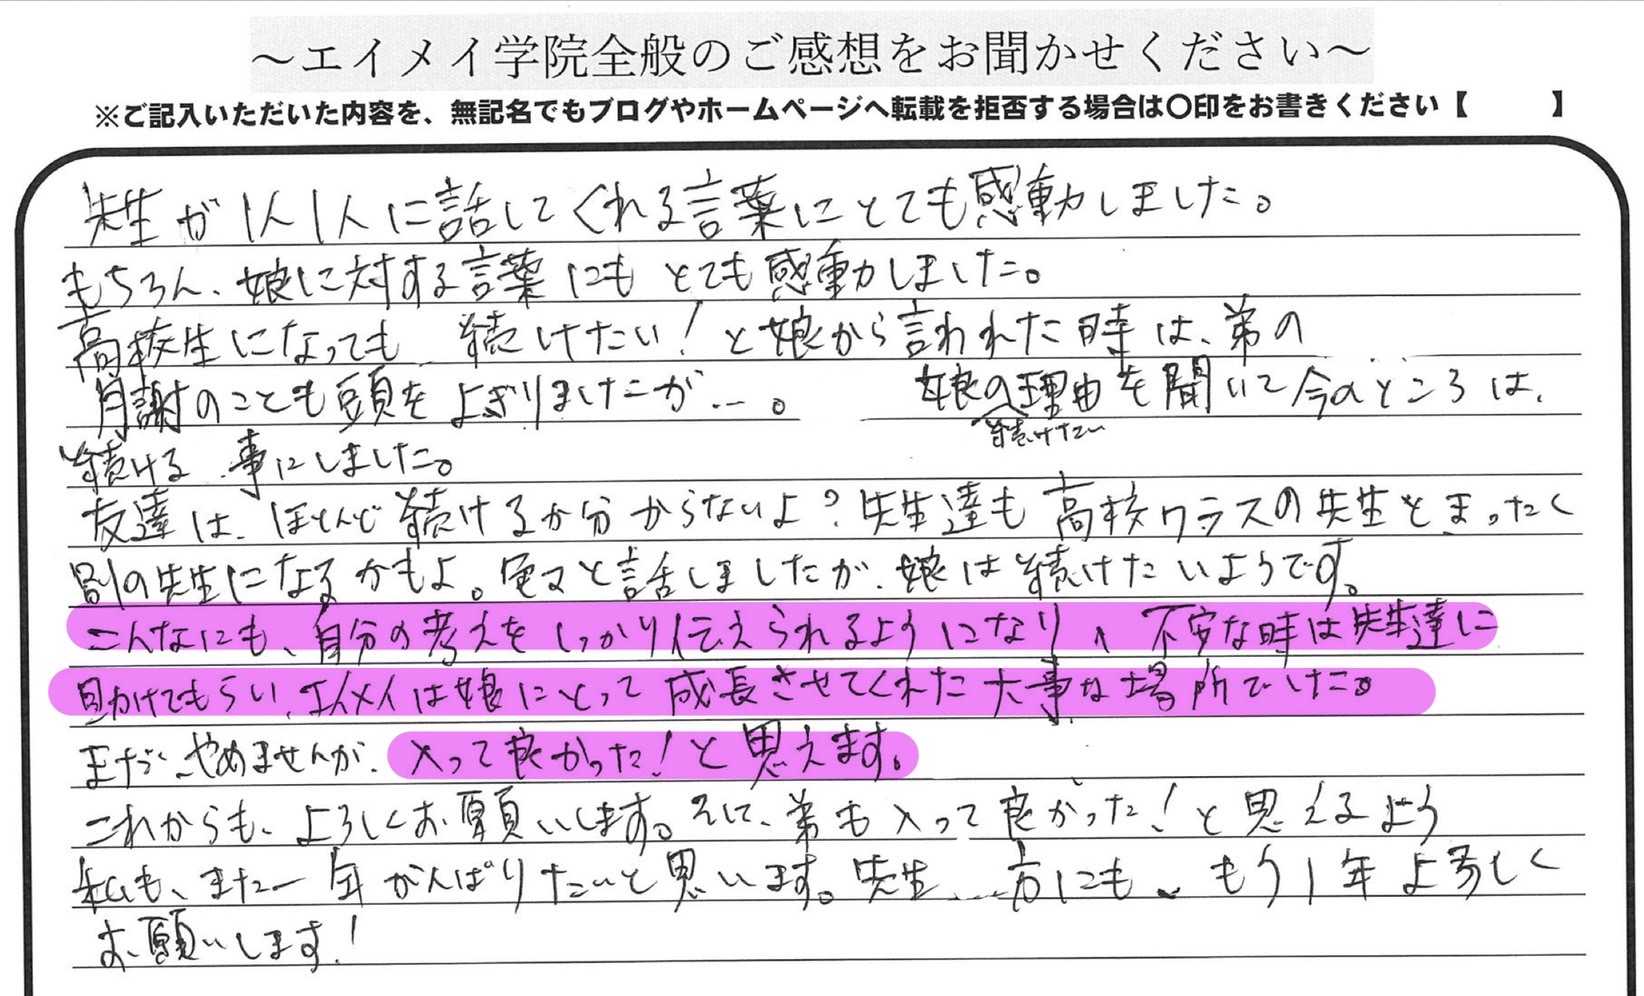 ～エイメイ学院全般のご感想をお聞かせください～
※ご記入いただいた内容を、無記名でもブログやホームページへ転載を拒否する場合は〇印をお書きください【　　　】
先生が1人1人に話してくれる言葉にとても感動しました。
もちろん、娘に対する言葉にもとても感動しました。
高校生になっても続けたい！と娘から言われた時は、弟の
月謝のことも頭をよぎりましたが…。娘の理由を聞いて今のところは、
続けたい
続ける事にしました。
友達は、ほとんど続けるか分からないよ？先生達も高校クラスの先生とまったく
別の先生になるかもよ。色々と話しましたが、娘は続けたいようです。
こんなにも、自分の考えをしっかり伝えられるようになり、不安な時は先生達に
助けてもらい、エイメイは娘にとって成長させてくれた大事な場所でした。
まだやめませんが、入って良かった！と思えます。
これからも、よろしくお願いします。そして、弟も入って良かった！と思えるよう
私も、また一年がんばりたいと思います。先生方にも、もう1年よろしく
お願いします！